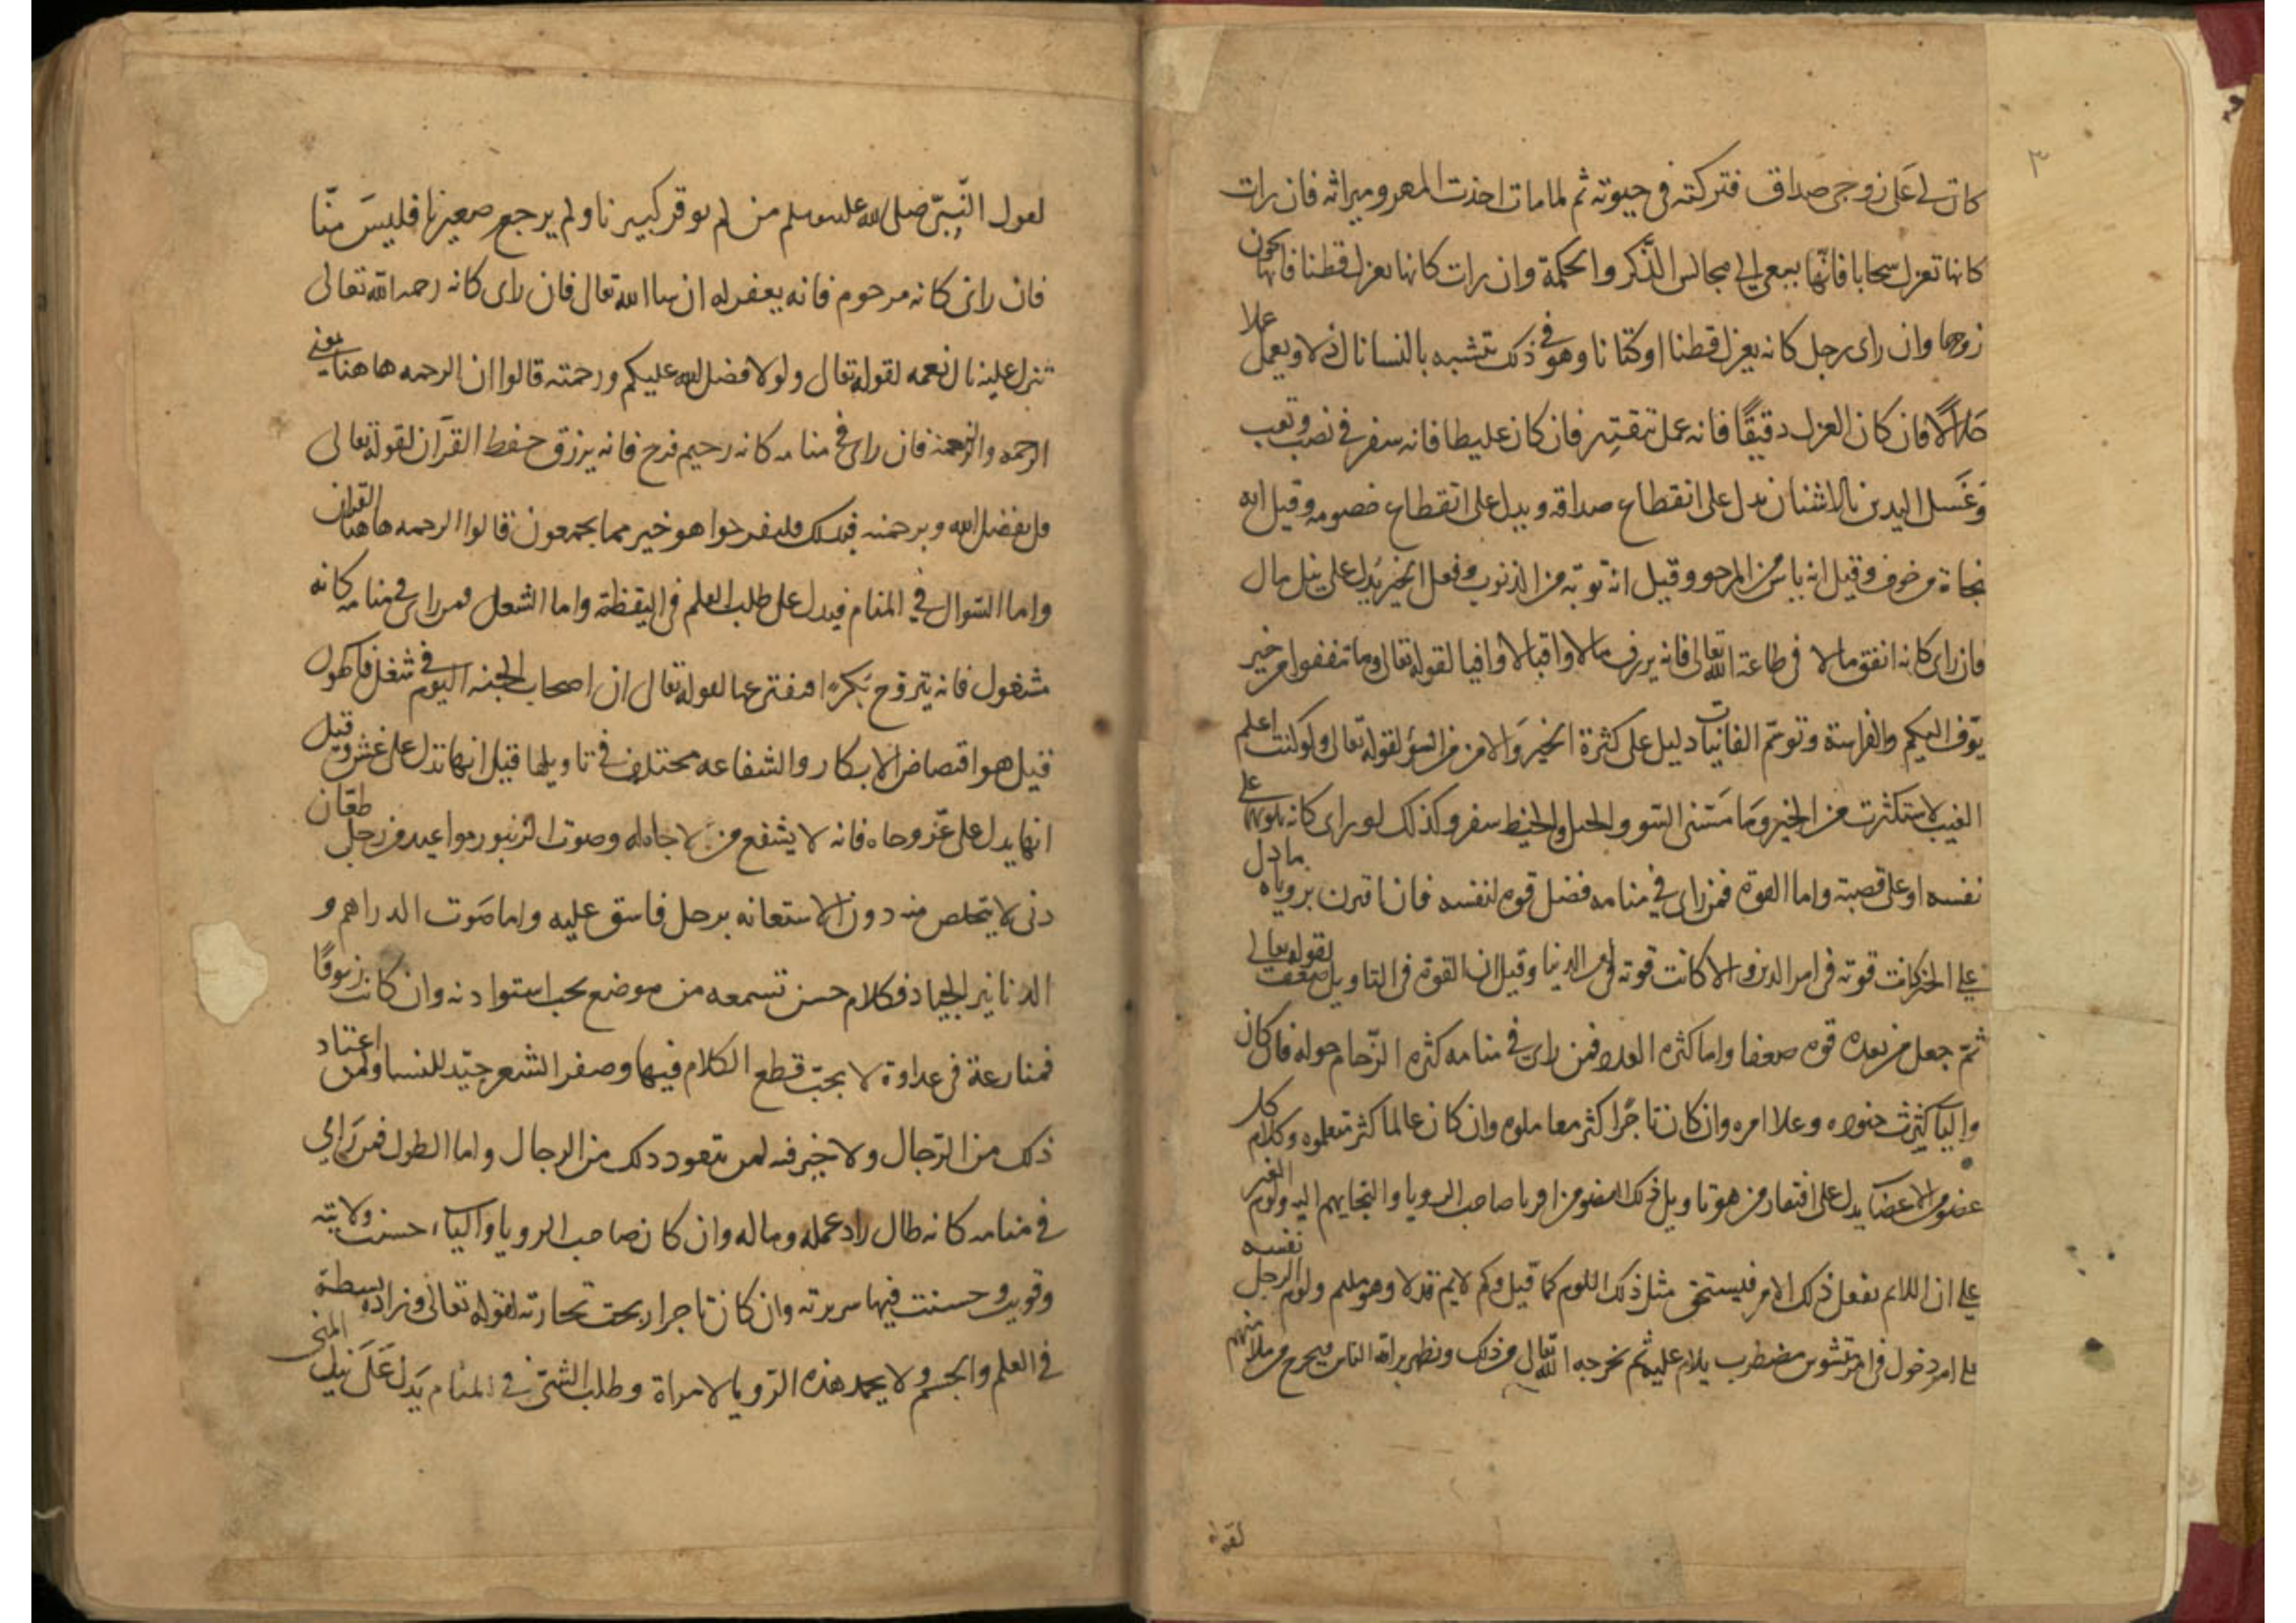 ٣
كان لى على زوجى صداق فتركته فى حيوته ثم لما مات اخذت المهر وميراثه فان رات
كانها تعزل سحابا فانها تسعى الى مجالس الذكر والحكمة وان رات كانها تعزل قطنا فانها تخون
زوجها وان راى رجل كانه يغزل قطنا او كتانا وهو فى ذلك يتشبه بالنسا نال ذلا ويعمل عملا
حلالا فان كان الغزل دقيقا فانه عمل بتقتير فان كان غليظا فانه سفر فى نصب وتعب
وغسل اليدين بالاشنان يدل على انقطاع صداقه ويدل على انقطاع خصومه وقيل انه
نجاة من خوف وقيل انه ياس من المرجو وقيل انه توبة من الذنوب وفعل الخير يدل على نيل مال
فان راى كانه انفق مالا فى طاعة الله تعالى فانه يرزق مالا واقبالا وافيا لقوله تعالى وما تنفقوا من خير
يوف اليكم والفراسة وتوسم الغائبات دليل على كثرة الخير والامن من السؤ لقوله تعالى ولو كنت اعلم
الغيب لاستكثرت من الخير وما مسنى السو والحبل والخيط سفر وكذلك لو راى كانه يلويهما على
نفسه او على قصبة واما القوة فمن راى فى منامه فضل قوة لنفسه فان اقترن بروياه مادل
على الخير كانت قوته فى امر الدين والا كانت قوته فى امر الدنيا وقيل ان القوة فى التاويل ضعف لقوله تعالى
ثم جعل من بعد قوة ضعفا واما كثرة العدد فمن راى فى منامه كثرة الزحام حوله فان كان
واليا كثرت جنوده وعلا امره وان كان تاجرا كثر معاملوه وان كان عالما كثر متعلموه وكلام كل
عضو من الاعضا يدل على افتقار من هو تاويل ذلك العضو من اقربا صاحب الرويا والتجايهم اليه ولوم الغير
على ان اللايم يفعل ذلك الامر فيستحق مثل ذلك اللوم كما قيل وكم لايم قد لام وهو مليم ولوم الرجل نفسه
على امر دخول فى امر مشوش مضطرب يلام عليه ثم يخرجه الله تعالى من ذلك ويظهر براته للناس فيخرج من ملامتهم
لقوله
لقول النبى صلى الله عليه وسلم من لم يوقر كبيرنا ولم يرحم صغيرنا فليس منا
فان راى كانه مرحوم فانه يغفر له ان شا الله تعالى فان راى كانه رحمه الله تعالى
تنزل عليه نال نعمه لقوله تعالى ولولا فضل الله عليكم ورحمته قالوا ان الرحمه هاهنا يعنى
الرحمه والنعمة فان راى فى منامه كانه رحيم فرح فانه يرزق حفظ القرآن لقوله تعالى
قل بفضل الله وبرحمته فبذلك فليفرحوا هو خير مما يجمعون قالوا الرحمه هاهنا القران
واما السوال فى المنام فيدل على طلب العلم فى اليقظة واما الشغل فمن راى فى منامه كانه
مشغول فانه يتزوج بكرا او يفترعها لقوله تعالى ان اصحاب الجنه اليوم فى شغل فاكهون
قيل هو اقتضاض الابكار والشفاعه مختلف فى تاويلها قيل انها تدل على غش وقيل
انها يدل على عز وجاه فانه لا يشفع من لا جاه له وصوت الزنبور مواعيد من رجل طعان
دنى لا يتخلص منه دون الاستعانه برجل فاسق عليه واما صوت الدراهم و
الدنانير الجياد فكلام حسن تسمعه من موضع يحب استزادته وان كانت زيوفا
فمنازعة فى عداوة لا يحب قطع الكلام فيها وضفر الشعر جيد للنسا ولمن اعتاد
ذلك من الرجال ولا خير فيه لمن يتعود ذلك من الرجال واما الطول فمن راى
فى منامه كانه طال زاد عمله وماله وان كان صاحب الرويا واليا، حسنت ولايته
وقويت وحسنت فيها سيرته وان كان تاجرا ربحت تجارته لقوله تعالى وزاده بسطة
فى العلم والجسم ولا يحمد هذه الرويا لامراة وطلب الشى فى المنام يدل على نيل المنى